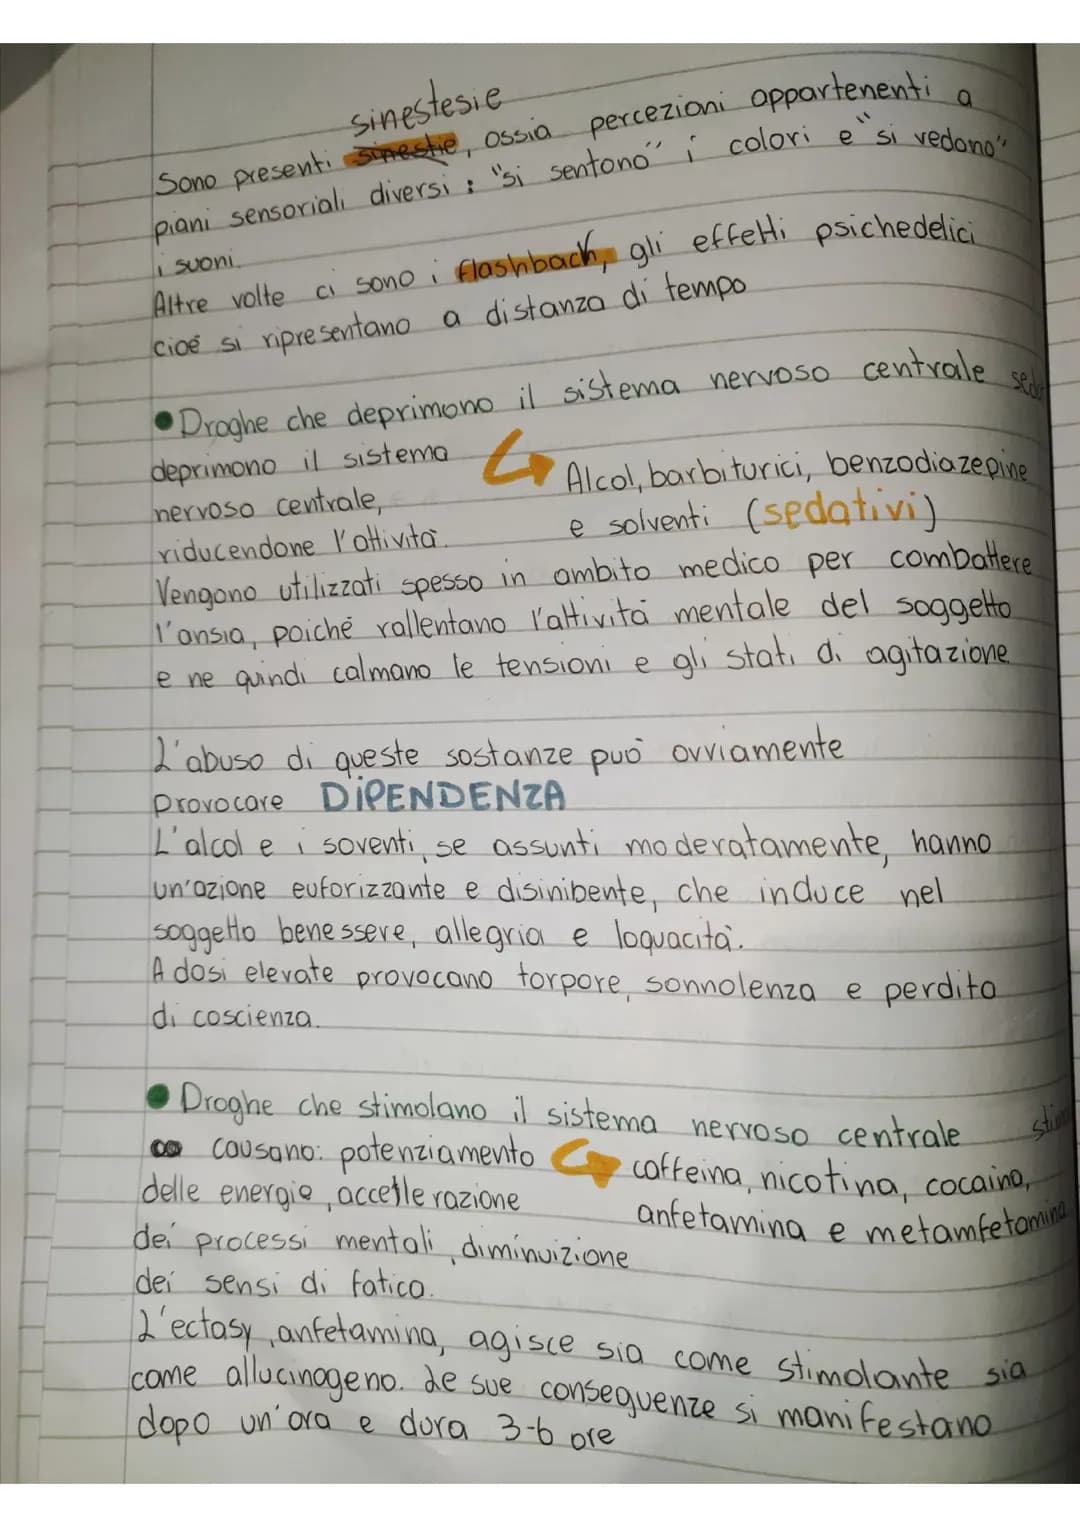 sinestesie
Sono presenti sinestie, ossia percezioni appartenenti a
piani sensoriali diversi: "si sentono" i colori e "si vedono"
i suoni.
Altre volte ci sono i flashback, gli effetti psichedelici
cioè si ripresentano a distanza di tempo
• Droghe che deprimono il sistema nervoso centrale
deprimono il sistema
nervoso centrale,
riducendone l'attività.
Alcol, barbiturici, benzodiazepine
e solventi (sedativi)
Vengono utilizzati spesso in ambito medico per combattere
l'ansia, poiché rallentano l'attività mentale del soggetto
e ne quindi calmano le tensioni e gli stati di agitazione
L'abuso di queste sostanze può ovviamente
provocare DIPENDENZA
L'alcol e i soventi, se assunti moderatamente, hanno
un'azione euforizzante e disinibente, che induce nel
soggetto benessere, allegria e loquacità.
A dosi elevate provocano torpore, sonnolenza e perdita
di coscienza.
• Droghe che stimolano il sistema nervoso centrale
causano: potenziamento
delle energie, accelerazione
dei processi mentali, diminuizione
dei sensi di fatica.
caffeina, nicotina, cocaina,
anfetamina e metamfetamina
L'ectasy, anfetamina, agisce sia come stimolante sia
come allucinogeno. Le sue conseguenze si manifestano
dopo un'ora e dura 3-6 ore